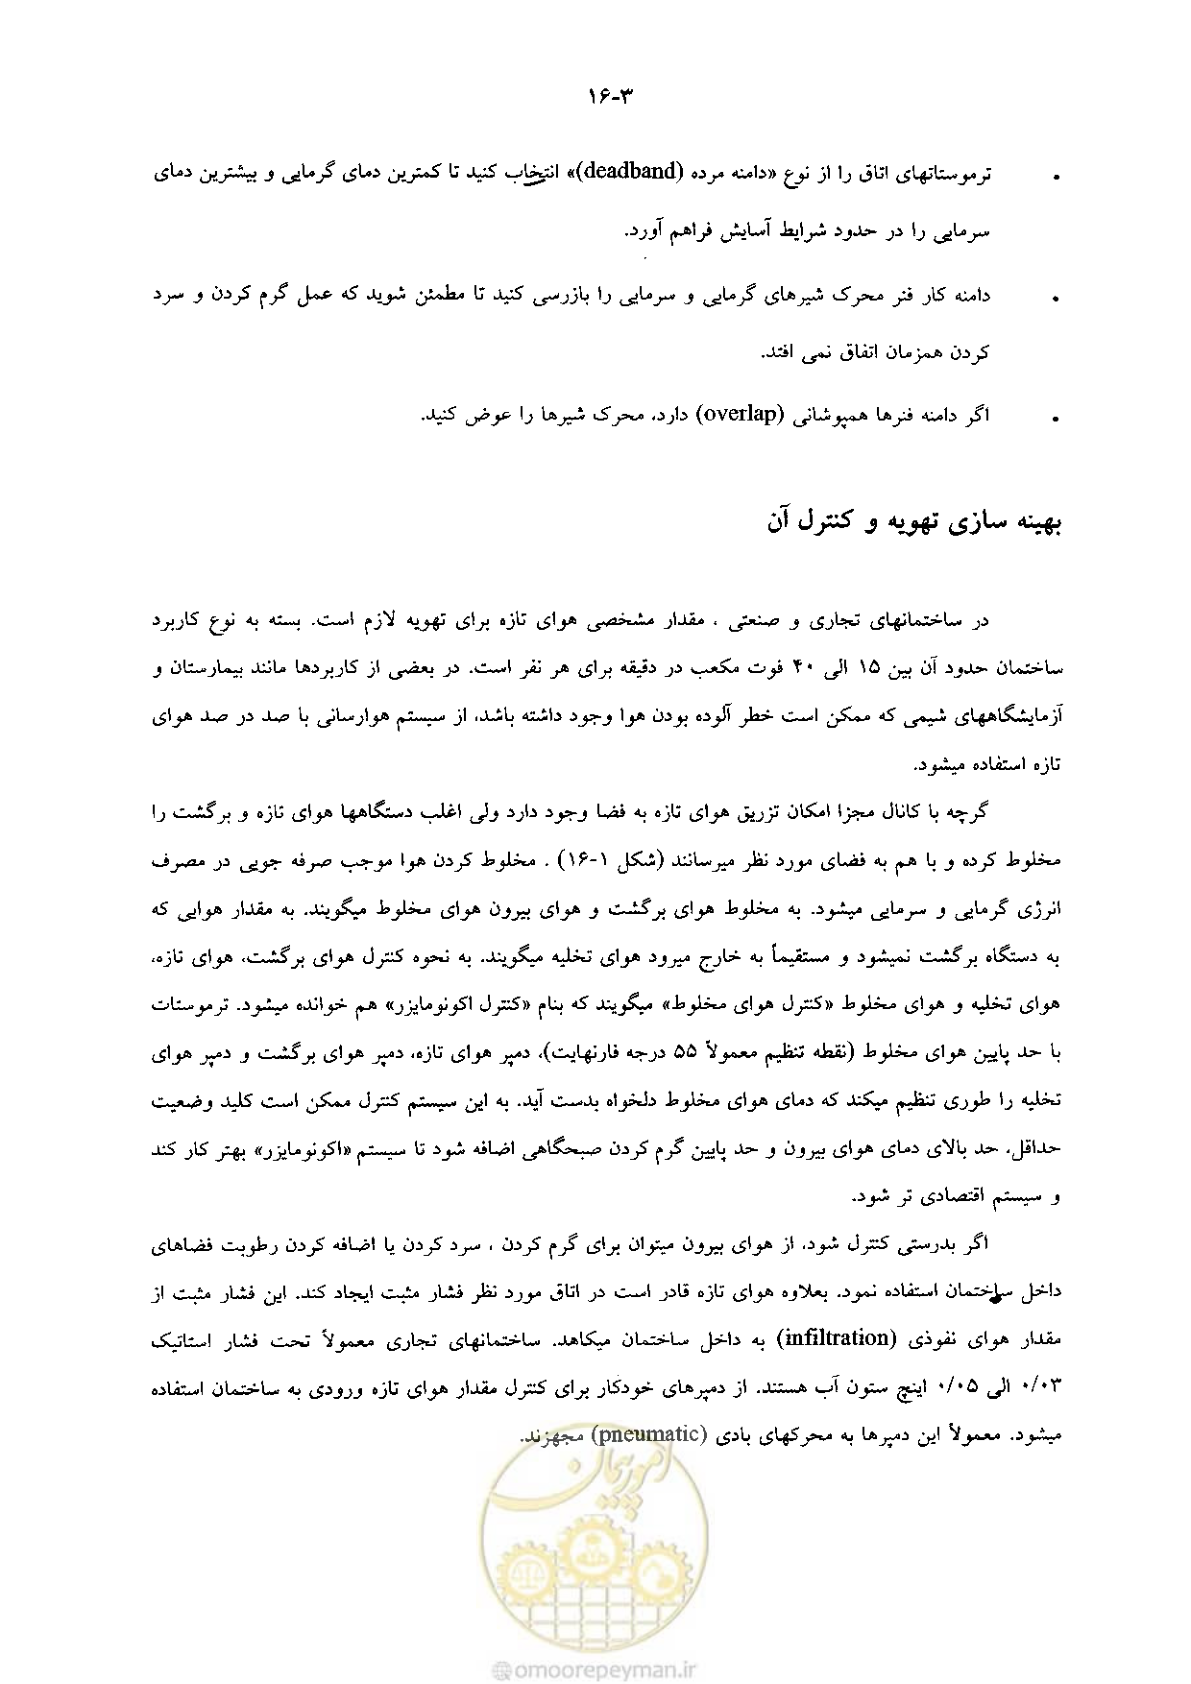 ۱۶-۳
• ترموستاتهای اتاق را از نوع «دامنه مرده (deadband)» انتخاب کنید تا کمترین دمای گرمایی و بیشترین دمای
سرمایی را در حدود شرایط آسایش فراهم آورد.
• دامنه کار فنر محرک شیرهای گرمایی و سرمایی را بازرسی کنید تا مطمئن شوید که عمل گرم کردن و سرد
کردن همزمان اتفاق نمی افتد.
• اگر دامنه فنرها همپوشانی (overlap) دارد، محرک شیرها را عوض کنید.
بهینه سازی تهویه و کنترل آن
در ساختمانهای تجاری و صنعتی ، مقدار مشخصی هوای تازه برای تهویه لازم است. بسته به نوع کاربرد
ساختمان حدود آن بین ۱۵ الی ۴۰ فوت مکعب در دقیقه برای هر نفر است. در بعضی از کاربردها مانند بیمارستان و
آزمایشگاههای شیمی که ممکن است خطر آلوده بودن هوا وجود داشته باشد، از سیستم هوارسانی با صد در صد هوای
تازه استفاده میشود.
گرچه با کانال مجزا امکان تزریق هوای تازه به فضا وجود دارد ولی اغلب دستگاهها هوای تازه و برگشت را
مخلوط کرده و با هم به فضای مورد نظر میرسانند (شکل ۱-۱۶) . مخلوط کردن هوا موجب صرفه جویی در مصرف
انرژی گرمایی و سرمایی میشود. به مخلوط هوای برگشت و هوای بیرون هوای مخلوط میگویند. به مقدار هوایی که
به دستگاه برگشت نمیشود و مستقیماً به خارج میرود هوای تخلیه میگویند. به نحوه کنترل هوای برگشت، هوای تازه،
هوای تخلیه و هوای مخلوط «کنترل هوای مخلوط» میگویند که بنام «کنترل اکونومایزر» هم خوانده میشود. ترموستات
با حد پایین هوای مخلوط (نقطه تنظیم معمولاً ۵۵ درجه فارنهایت)، دمپر هوای تازه، دمپر هوای برگشت و دمپر هوای
تخلیه را طوری تنظیم میکند که دمای هوای مخلوط دلخواه بدست آید. به این سیستم کنترل ممکن است کلید وضعیت
حداقل، حد بالای دمای هوای بیرون و حد پایین گرم کردن صبحگاهی اضافه شود تا سیستم «اکونومایزر» بهتر کار کند
و سیستم اقتصادی تر شود.
اگر بدرستی کنترل شود، از هوای بیرون میتوان برای گرم کردن ، سرد کردن یا اضافه کردن رطوبت فضاهای
داخل ساختمان استفاده نمود. بعلاوه هوای تازه قادر است در اتاق مورد نظر فشار مثبت ایجاد کند. این فشار مثبت از
مقدار هوای نفوذی (infiltration) به داخل ساختمان میکاهد. ساختمانهای تجاری معمولاً تحت فشار استاتیک
۰/۰۳ الی ۰/۰۵ اینچ ستون آب هستند. از دمپرهای خودکار برای کنترل مقدار هوای تازه ورودی به ساختمان استفاده
میشود. معمولاً این دمپرها به محرکهای بادی (pneumatic) مجهزند.
امور پیمان
@omoorepeyman.ir